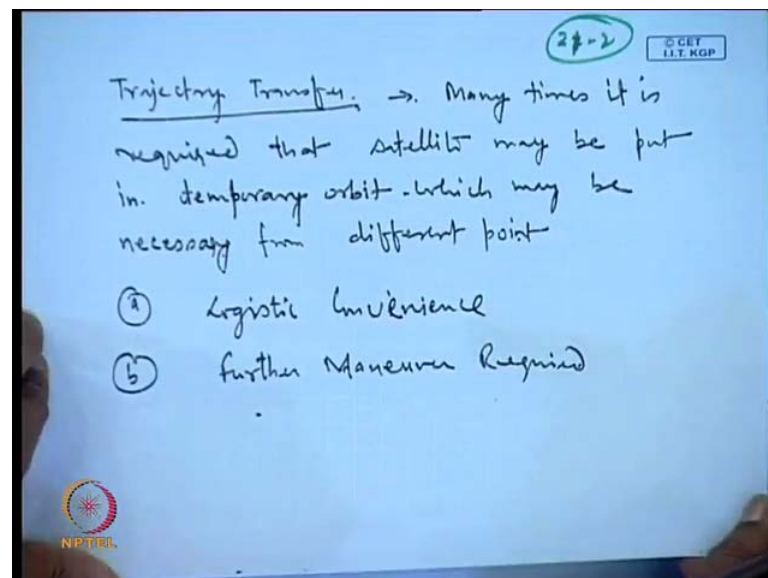 © CET
I.I.T. KGP
Trajectory Transfer. → Many times it is
required that satellite may be put
in. temporary orbit. which may be
necessary from different point
(a) Logistic Convenience
(b) further Maneuver Required
NPTEL